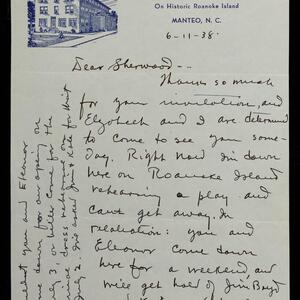 On Historic Roanoke Island
MANTEO, N. C.
6-11-38-
Dear Sherwood--
Thanks so much
for your invitation, and
Elizabeth and I are determined
to come to see you some-
day. Right now I'm down
here on Roanoke Island
rehearsing a play and
can't get away. In
retaliation: you and
Eleanor come down
here for a weekend, and
we'll get hold of Jim Boyd
you and Eleanor
come down for our opening on
July 3, or better come for the
dress rehearsal on
July 2.